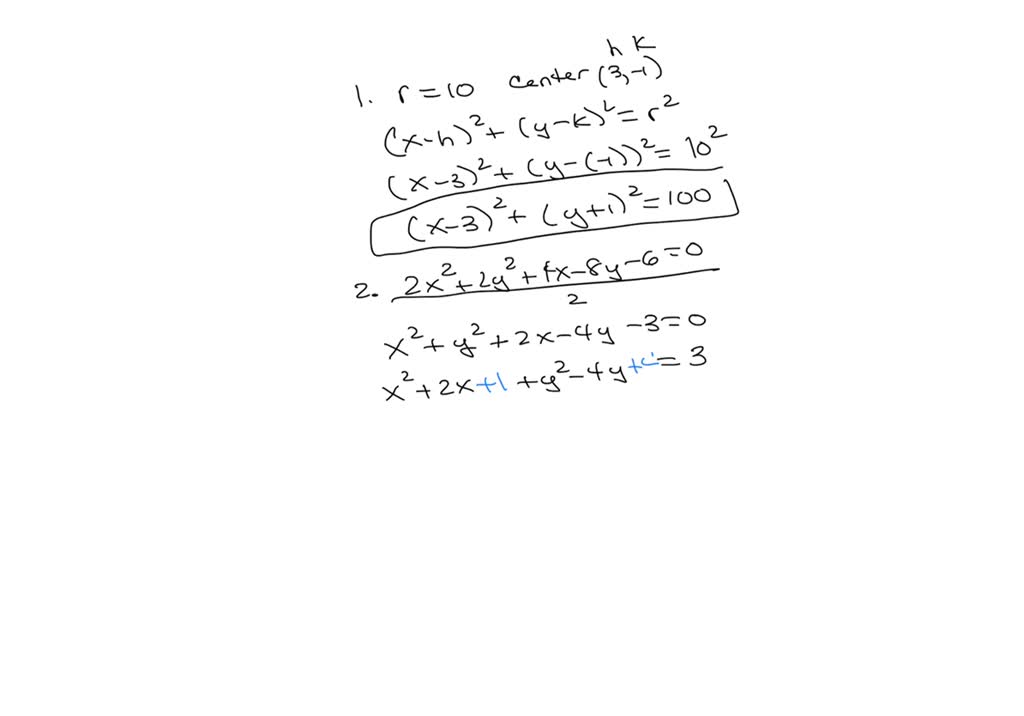 h k
1. r = 10 center (3,-1)
(x-h)² + (y-k)² = r²
(x-3)² + (y-(-1))² = 10²
(x-3)² + (y+1)² = 100
2. 2x² + 2y² + 4x - 8y - 6 = 0
2
x² + y² + 2x - 4y - 3 = 0
x² + 2x +1 + y² - 4y +4 = 3